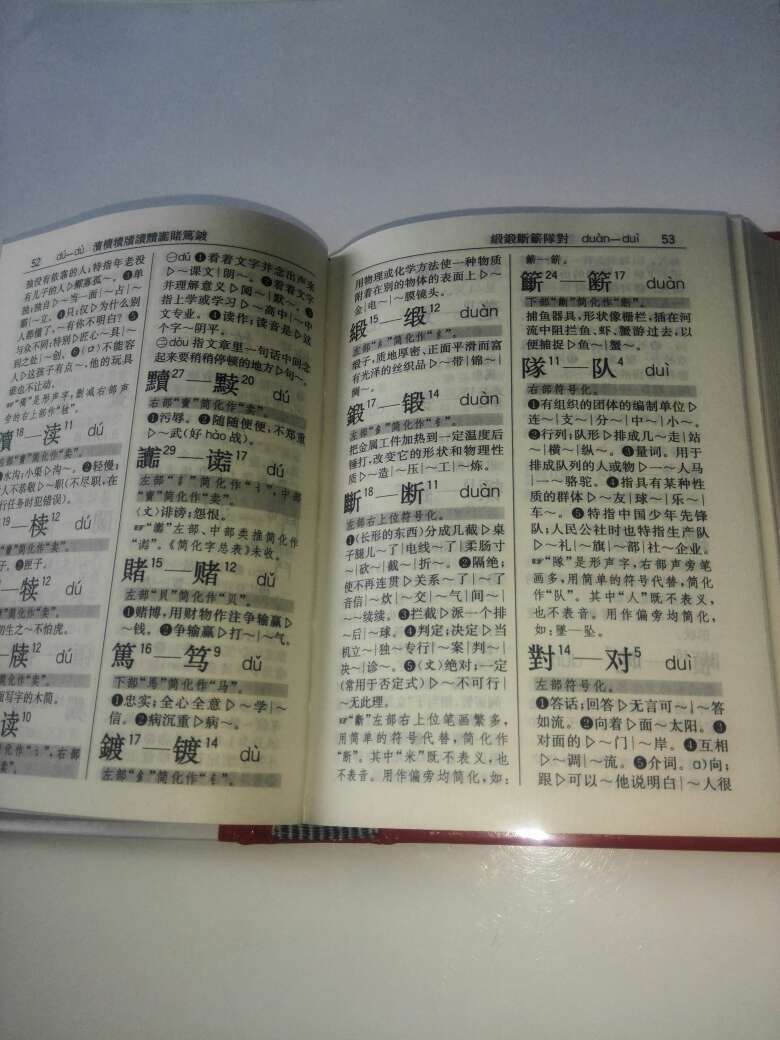 52 dú—dù 瀆櫝犢牘讀黷讟賭篤鍍
獨没有依靠的人；特指年老没
有儿子的人▷鳏寡孤～。❸单
独；独自▷～当一面｜～占｜～
霸｜～立。❹只；仅▷为什么别
人都懂了，～有你不明白？❺
与众不同；特别▷匠心～具｜～
到之处｜～创。❻〈口〉不能容
人▷这孩子有点～，他的玩具
谁也不让动。
是形声字，删减右部声
旁的右上部作
瀆18—渎12 dú
右部“賣”简化作“卖”。
水沟；小渠▷沟～。❷轻慢；
人不恭敬▷～职（不尽职，在
行任务时犯错误）。
19—椟12 dú
右部“賣”简化作“卖”。
子。❷匣子。
—犊12 dú
初生之～不怕虎。
—牍12 dú
写字的木简。
读10
㊀dú❶看着文字并念出声来
▷～课文｜朗～。❷看着文字
并理解意义▷阅～｜默～。❸
指上学或学习▷～高中｜～中
文专业。❹读作；读音是▷这
个字～阴平。
㊁dòu指文章里一句话中间念
起来要稍稍停顿的地方▷句～。
黷27—黩20 dú
右部“賣”简化作“卖”。
❶污辱。❷随随便便，不郑重
▷～武（好hào战）。
讟29—讟17 dú
〈文〉诽谤；怨恨。
《简化字总表》未收。
賭15—赌12 dǔ
左部“貝”简化作“贝”。
❶赌博，用财物作注争输赢▷
～钱。❷争输赢▷打～｜～气。
篤16—笃9 dǔ
下部“馬”简化作“马”。
❶忠实；全心全意▷～学｜～
信。❷病沉重▷病～。
鍍17—镀14 dù
左部“釒”简化作“钅”。
緞鍛斷籪隊對 duàn—duì 53
用物理或化学方法使一种物质
附着在别的物体的表面上▷～
金｜电～｜～膜镜头。
緞15—缎12 duàn
左部“糹”简化作“纟”。
缎子，质地厚密、正面平滑而富
有光泽的丝织品▷～带｜锦～｜
绸～。
鍛17—锻14 duàn
左部“釒”简化作“钅”。
把金属工件加热到一定温度后
锤打，改变它的形状和物理性
质▷～造｜～压｜～工｜～炼。
斷18—断11 duàn
左部右上位符号化。
❶（长形的东西）分成几截▷桌
子腿儿～了｜电线～了｜柔肠寸
～｜砍～｜截～｜折～。❷隔绝；
使不再连贯▷关系～了｜～了
音信｜～炊｜～交｜～气｜间～｜
～～续续。❸拦截▷派一个排
～后｜～球。❹判定；决定▷当
机立～｜独～专行｜～案｜判～｜
决～｜诊～。❺〈文〉绝对；一定
（常用于否定式）▷～不可行｜
～无此理。
☞“斷”左部右上位笔画繁多，
用简单的符号代替，简化作
“断”。其中“米”既不表义，也
不表音。用作偏旁均简化，如：
籪—簖。
籪24—簖17 duàn
下部“斷”简化作“断”。
捕鱼器具，形状像栅栏，插在河
流中阻拦鱼、虾、蟹游过去，以
便捕捉▷鱼～｜蟹～。
隊11—队4 duì
右部符号化。
❶有组织的团体的编制单位▷
连～｜支～｜分～｜中～｜小～。
❷行列；队形▷排成几～走｜站
～｜横～｜纵～。❸量词。用于
排成队列的人或物▷一～人马
｜一～骆驼。❹指具有某种性
质的群体▷～友｜球～｜乐～｜
车～。❺特指中国少年先锋
队；人民公社时也特指生产队
▷～礼｜～旗｜～部｜社～企业。
☞“隊”是形声字，右部声旁笔
画多，用简单的符号代替，简化
作“队”。其中“人”既不表义，
也不表音。用作偏旁均简化，
如：墜—坠。
對14—对5 duì
左部符号化。
❶答话；回答▷无言可～｜～答
如流。❷向着▷面～太阳。❸
对面的▷～门｜～岸。❹互相
▷～调｜～流。❺介词。a）向；
跟▷可以～他说明白｜～人很